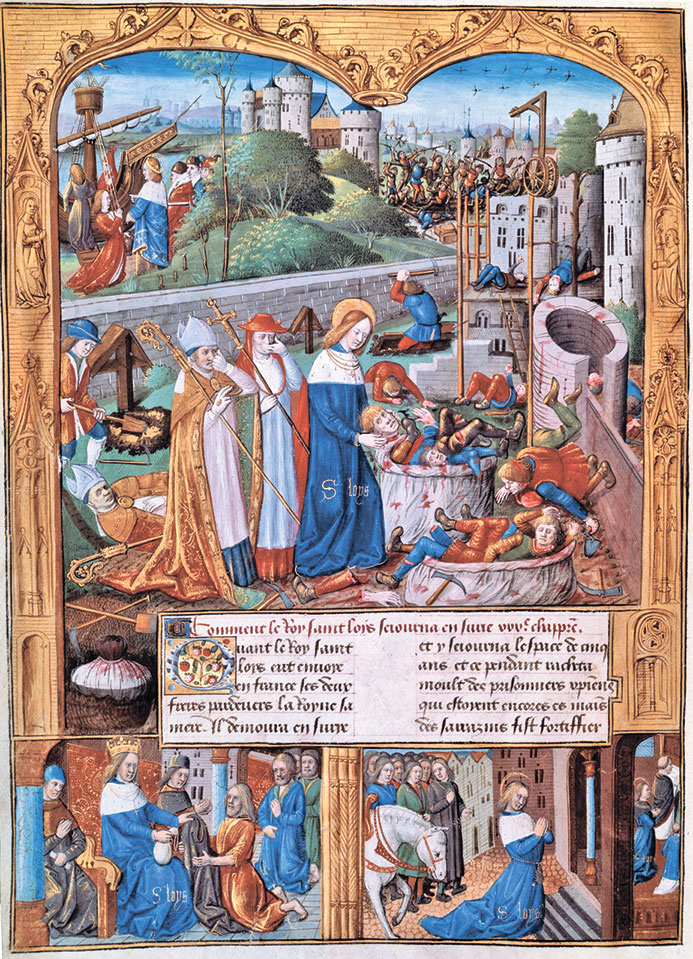 S loys
Comment le Roy saint loys seiourna en surie
Quant le Roy saint
loys eut enuoye
en france ses deux
freres par deuers la Royne sa
mere. Il demoura en surie
et y seiourna lespace de cinq
ans et ce pendant racheta
moult des prisonniers
qui estoyent encores es mais
des sarrazins fist fortiffier
S loys
S loys